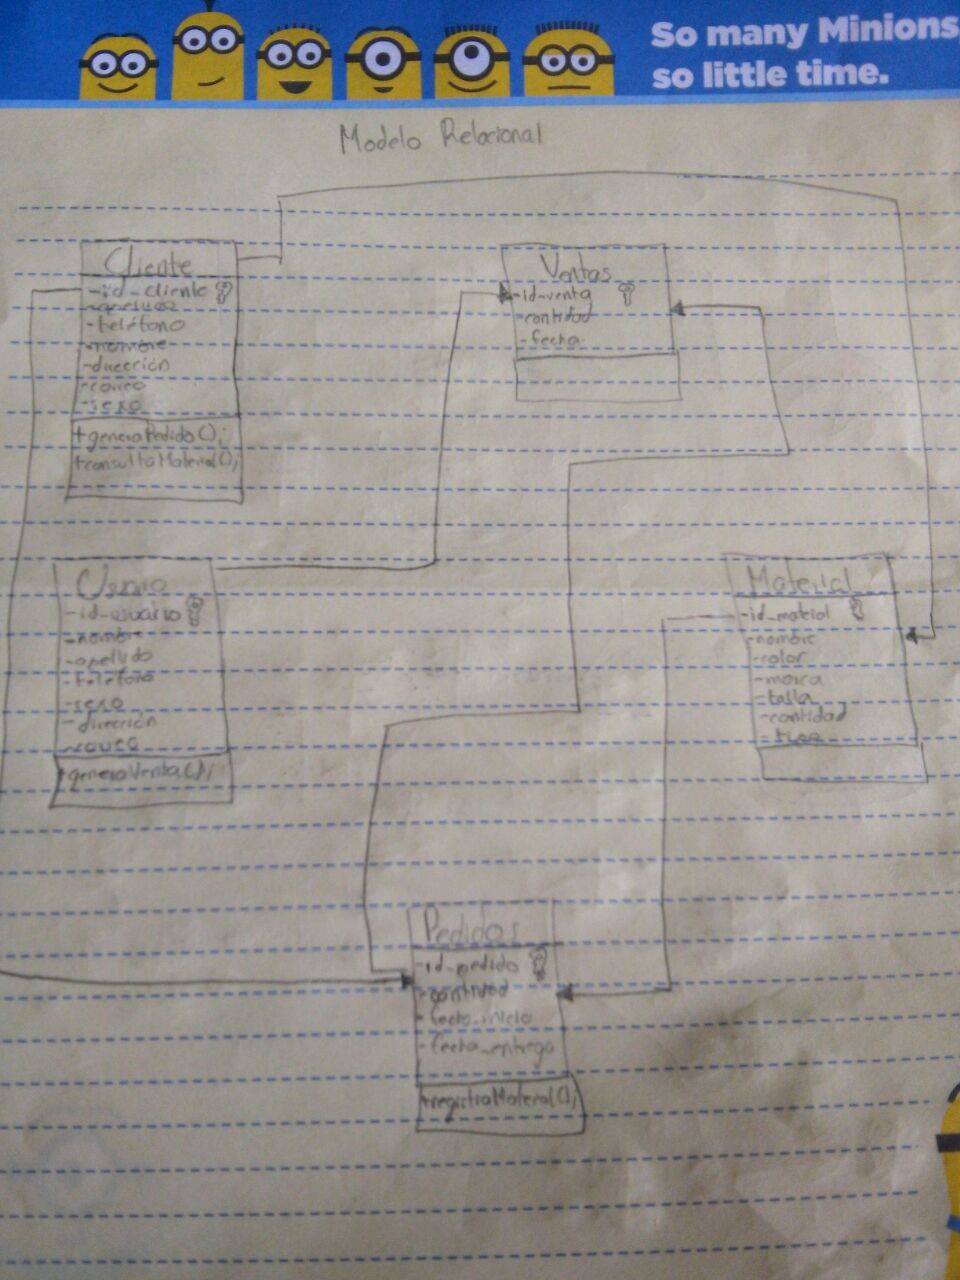 So many Minions
so little time.
Modelo Relacional
Cliente
-id_cliente
-apellido
-teléfono
-nombre
-dirección
-correo
-sexo
+generaPedido();
+consultaMaterial();
Ventas
-id_venta
-cantidad
-fecha
Usuario
-id_usuario
-nombre
-apellido
-teléfono
-sexo
-dirección
-correo
+generaVenta();
Material
-id_material
-nombre
-color
-marca
-talla
-cantidad
Pedidos
-id_pedido
-cantidad
-fecha_inicio
-fecha_entrega
+registraMaterial();